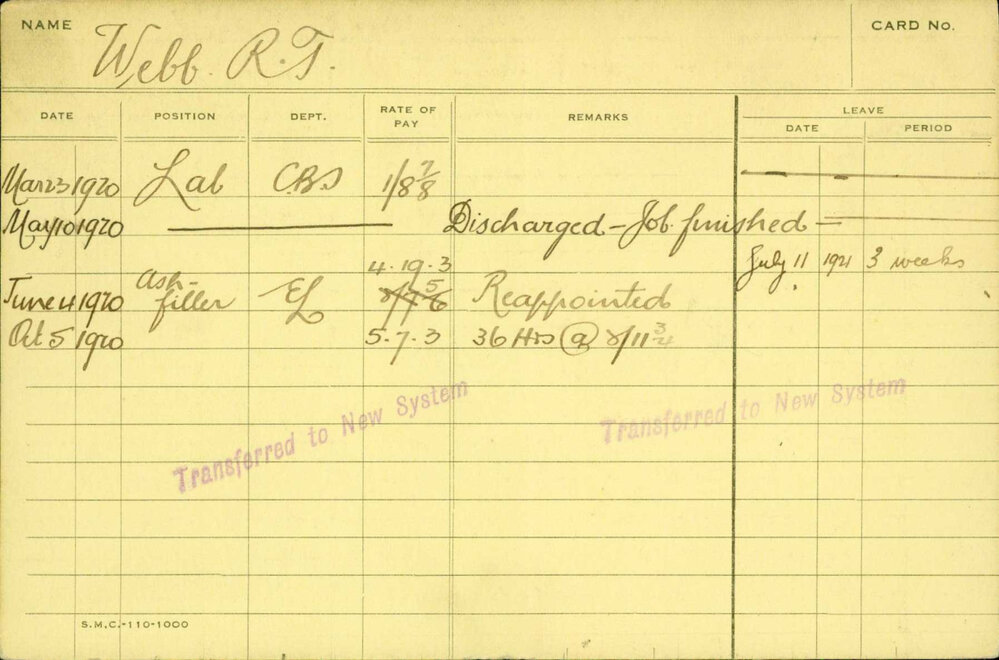 NAME Webb. R.T. CARD No.
DATE POSITION DEPT. RATE OF PAY REMARKS LEAVE
DATE PERIOD
Mar 23 1920 Lab CBS 1/8 7/8
May 10 1920 Discharged - Job finished -
4.19.3 July 11 1921 3 weeks
June 4 1920 Ash-filler EL Reappointed
Oct 5 1920 5.7.3 36 Hrs @ 2/11 3/4
Transferred to New System
Transferred to New System
S.M.C.-110-1000